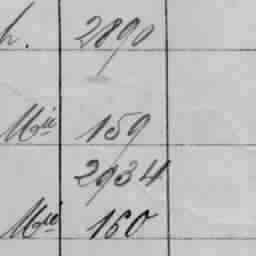 h. 2890
Mie 159
2934
Mie 160